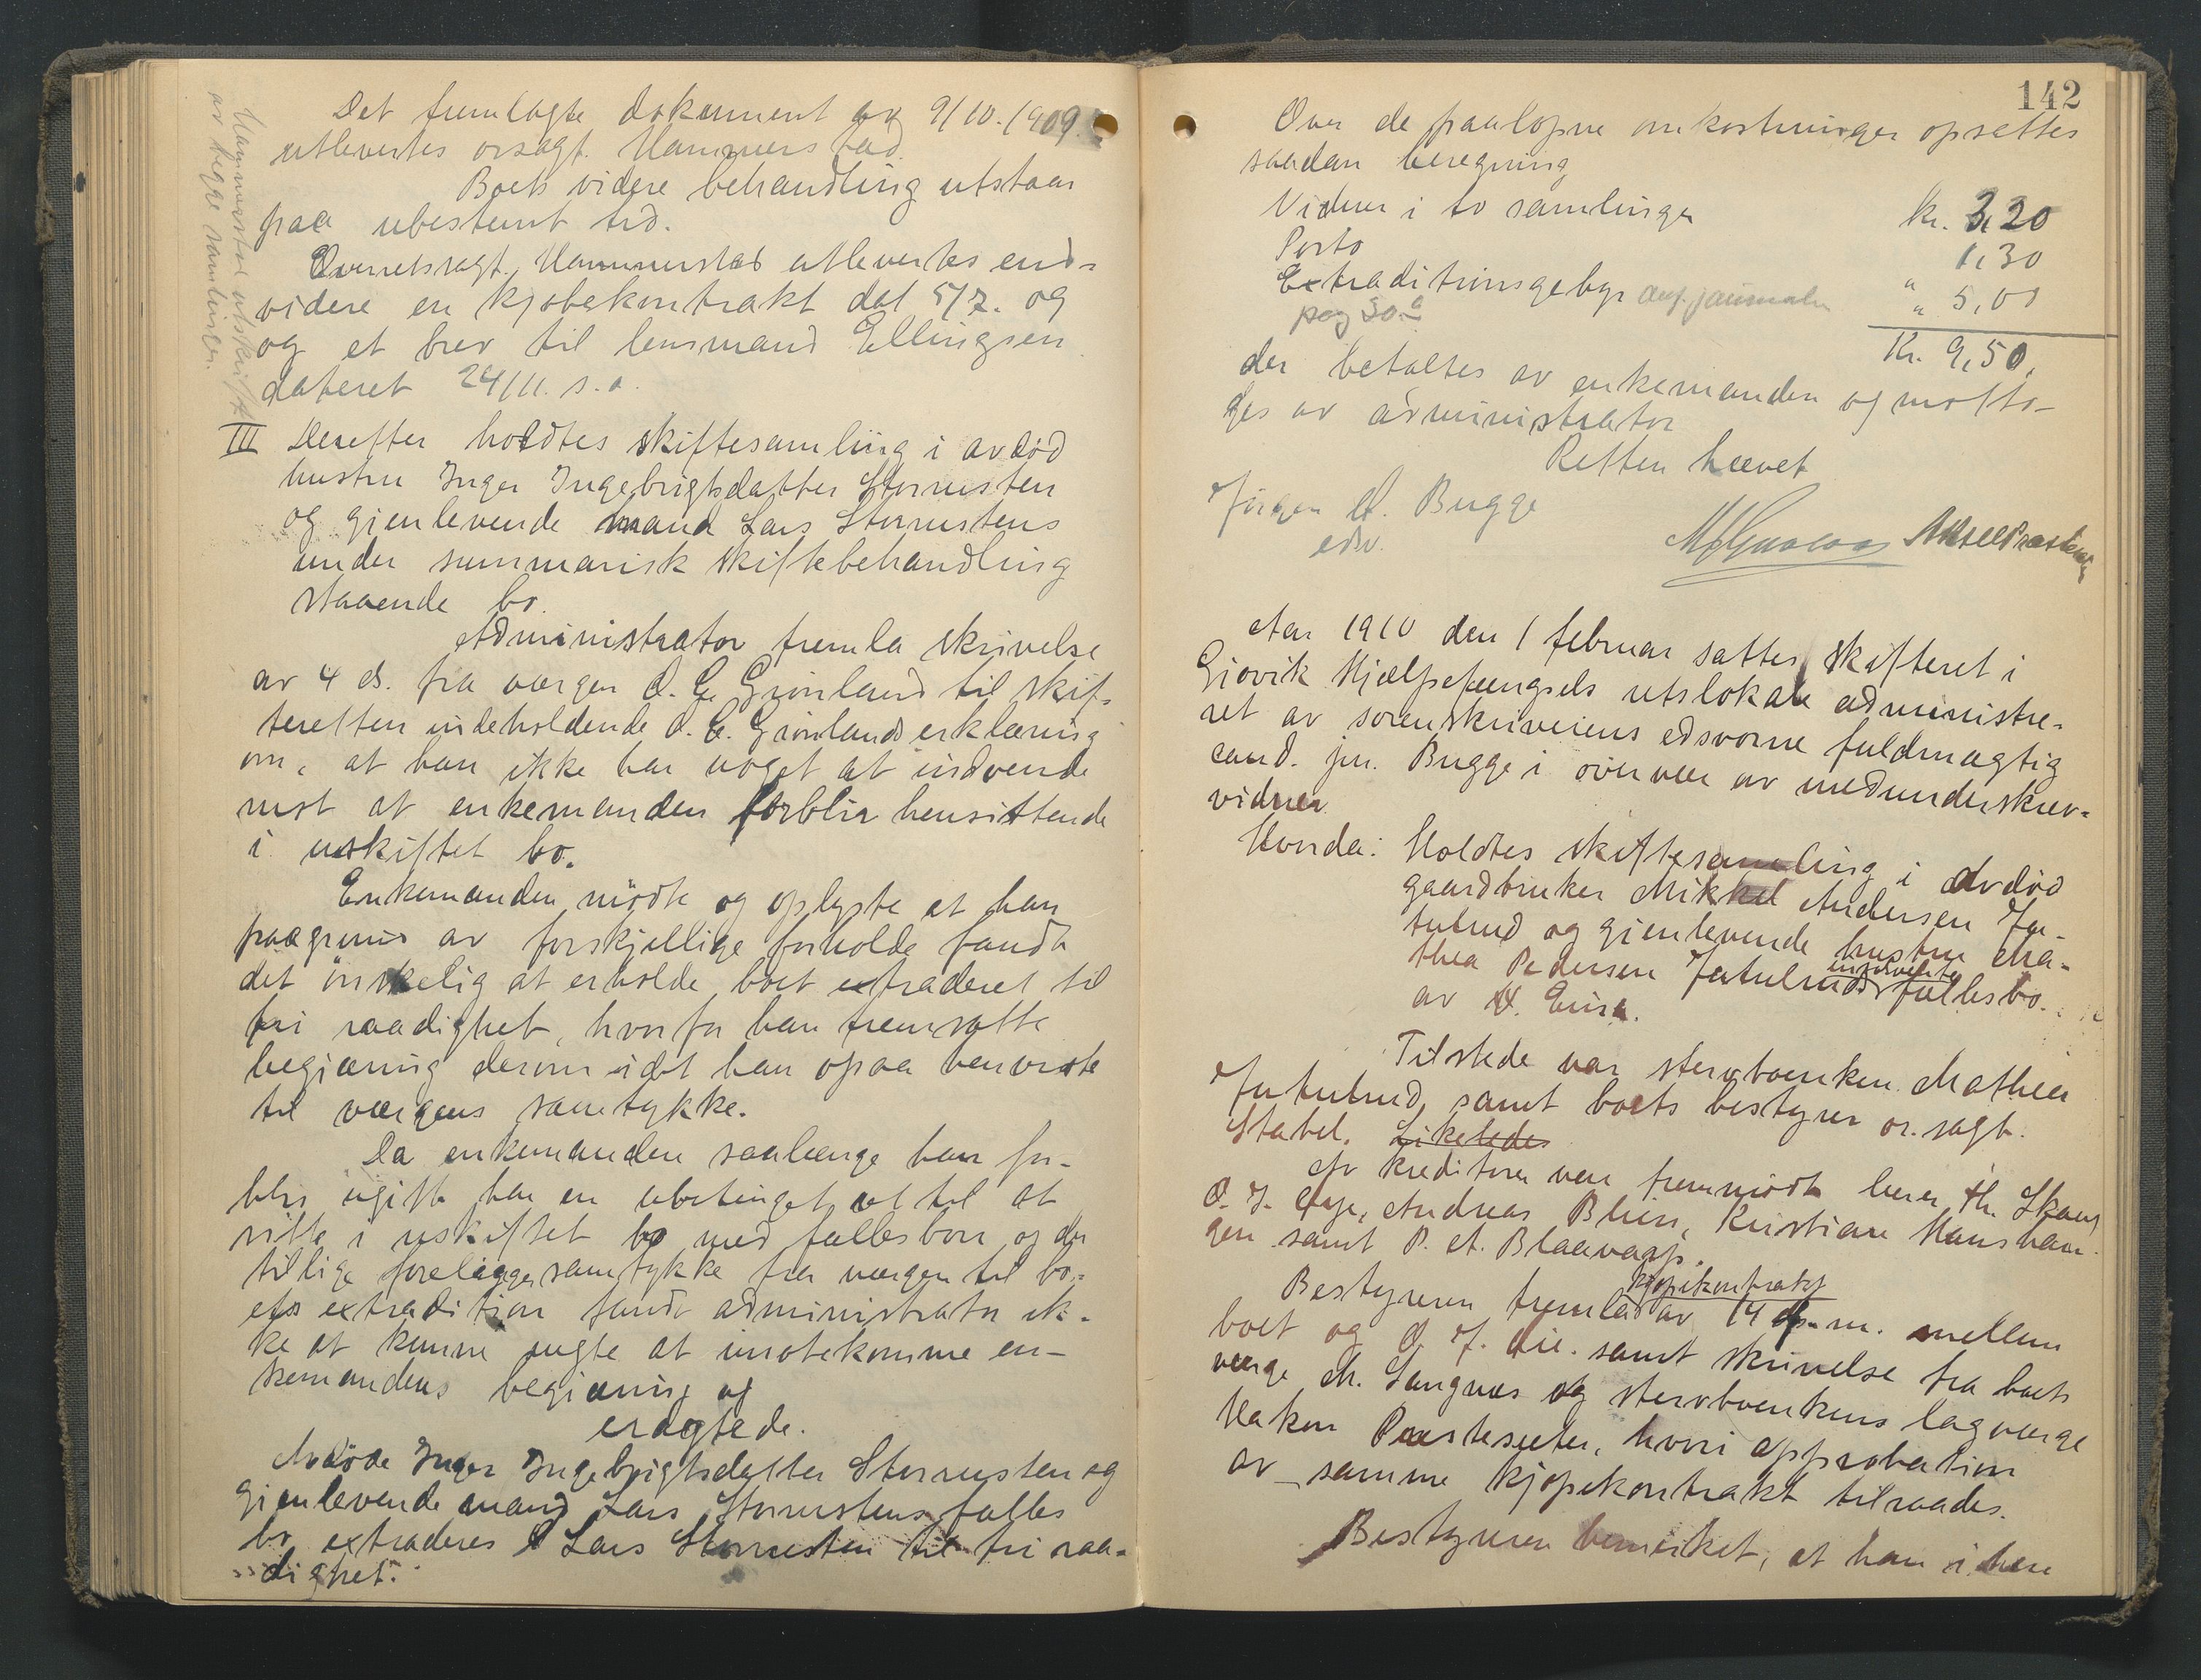 Hammerstad utskrift
av begge samlinger.
Det fremlagte dokument av 9/10. 1909.
utlevertes orsagf. Hammerstad.
Boets videre behandling utstaar
paa ubestemt tid.
Overretssagf. Hammerstad utlevertes end-
videre en kjøbekontrakt dat 5/7. og
og et brev til lensmand Ellingsen
dateret 24/11. s.a.
III Derefter holdtes skiftesamling i avdød
hustru Inger Ingebrigtsdatter Storrusten
og gjenlevende mand Lars Storrustens
under summarisk skiftebehandling
staaende bo.
Administrator fremla skrivelse
av 4 ds. fra vergen O. E. Grønland til skif-
teretten indeholdende O. E. Grønlands erklæring
om, at han ikke har noget at indvende
mot at enkemanden forblir hensittende
i uskiftet bo.
Enkemanden møtte og oplyste at han
paagrund av forskjellige forholde fandt
det ønskelig at erholde boet extraderet til
fri raadighet, hvorfor han fremsatte
begjæring derom idet han ogsaa henviste
til vergens samtykke.
Da enkemanden saalænge han for-
blir ugift har en ubetinget ret til at
sitte i uskiftet bo med fællesbørn og der
tillige foreligger samtykke fra vergen til bo-
ets extradition fandt administrator ik-
ke at kunne negte at imøtekomme en-
kemandens begjæring og
eragtede.
Avdøde Inger Ingebrigtsdatter Storrusten og
gjenlevende mand Lars Storrustens fælles
bo extraderes Lars Storrusten til fri raa-
dighet.
142
Over de paaløpne omkostninger opsættes
saadan beregning
Vidner i to samlinger Kr. 3,20
Porto " 1,30
Extraditionsgebyr anf. journalen " 5,00
pag 30
Kr. 9,50.
der betaltes av enkemanden og motto-
ges av administrator
Retten hævet
Jørgen A. Bugge
edsv.
Aar 1910 den 1 februar sattes skifteret i
Gjøvik Hjælpefængsels retslokale administre-
ret av sorenskriverens edsvorne fuldmægtig
cand. jur. Bugge i overvær av medunderskrev-
vidner.
Hvorda: Holdtes skiftesamling i avdød
gaardbruker Mikkel Andersen Ju-
tulrud og gjenlevende hustru Ma-
thea Pedersen Jutulruds insolvente fællesbo.
av V. Eina.
Tilstede var stervboenken Mathea
Jutulrud, samt boets bestyrer or. sagf.
Stabel. Likeledes
Av kreditorer var fremmøtt lærer Th. Skaug
O. J. Lye, Andreas Blien, Kristian Hanshau-
gen samt P. A. Blaavarp.
Bestyreren fremla kjøpekontrakt av 14 f. m. mellem
boet og O. J. Lie. samt skrivelse fra boets
verge M. Langnæs og stervboenkens lagverge
Hakon Præsteseter, hvori approbation
av samme kjøpekontrakt tilraades.
Bestyreren bemerket, at han i here